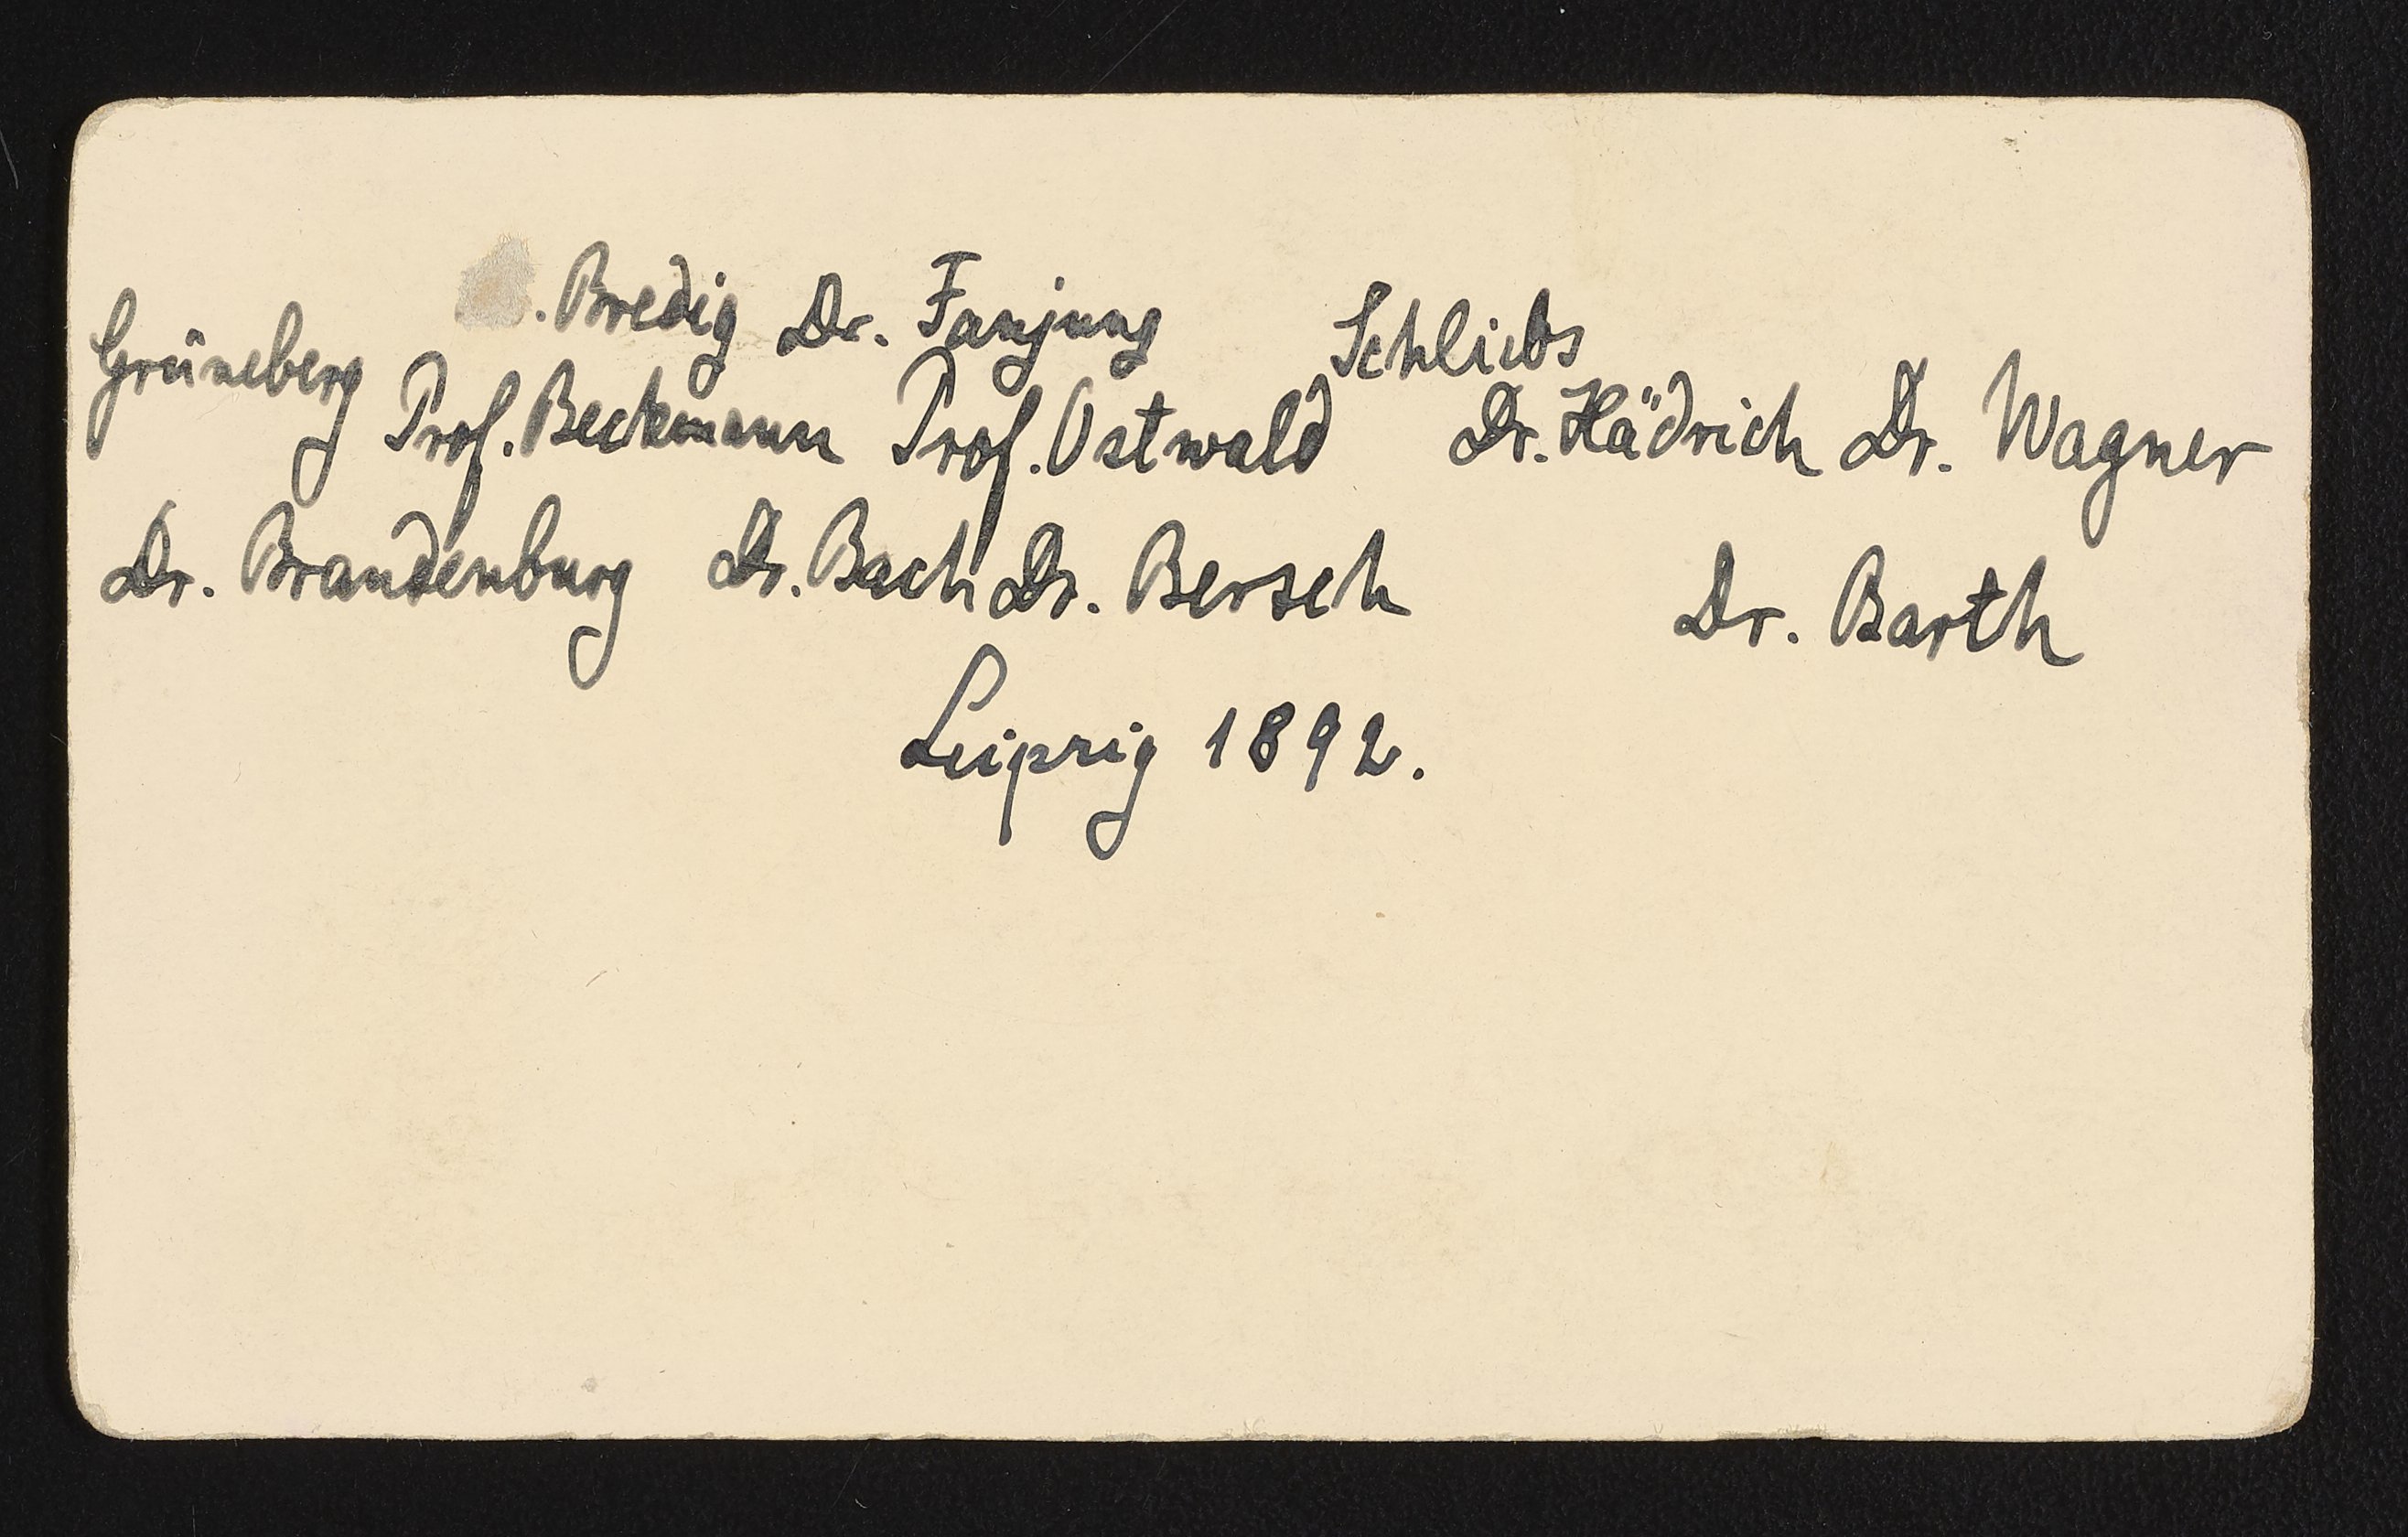 . Bredig Dr. Fanjung Schliebs
Grüneberg Prof. Beckmann Prof. Ostwald Dr. Hädrich Dr. Wagner
Dr. Brandenburg Dr. Bach Dr. Bersch Dr. Barth
Leipzig 1892.